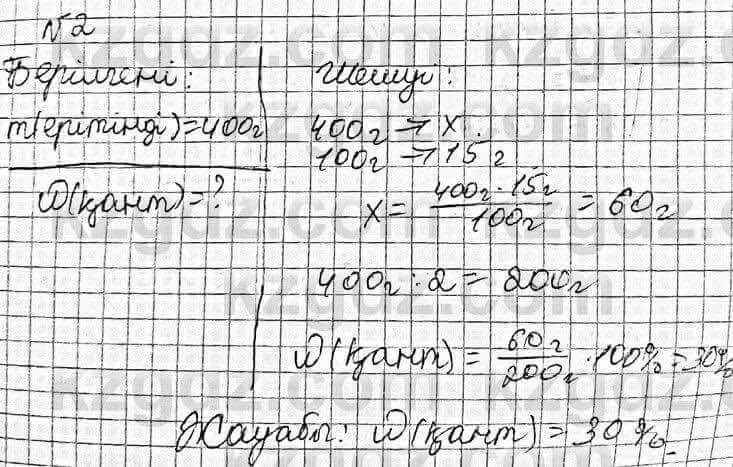 №2
Берілгені:
m(ерітінді)=400г
ω(қант)=?
Шешуі:
400г → x.
100г → 15г
x = 400г · 15г / 100г = 60г
400г : 2 = 200г
ω(қант) = 60г / 200г · 100% = 30%
Жауабы: ω(қант) = 30%
kzgdz.com